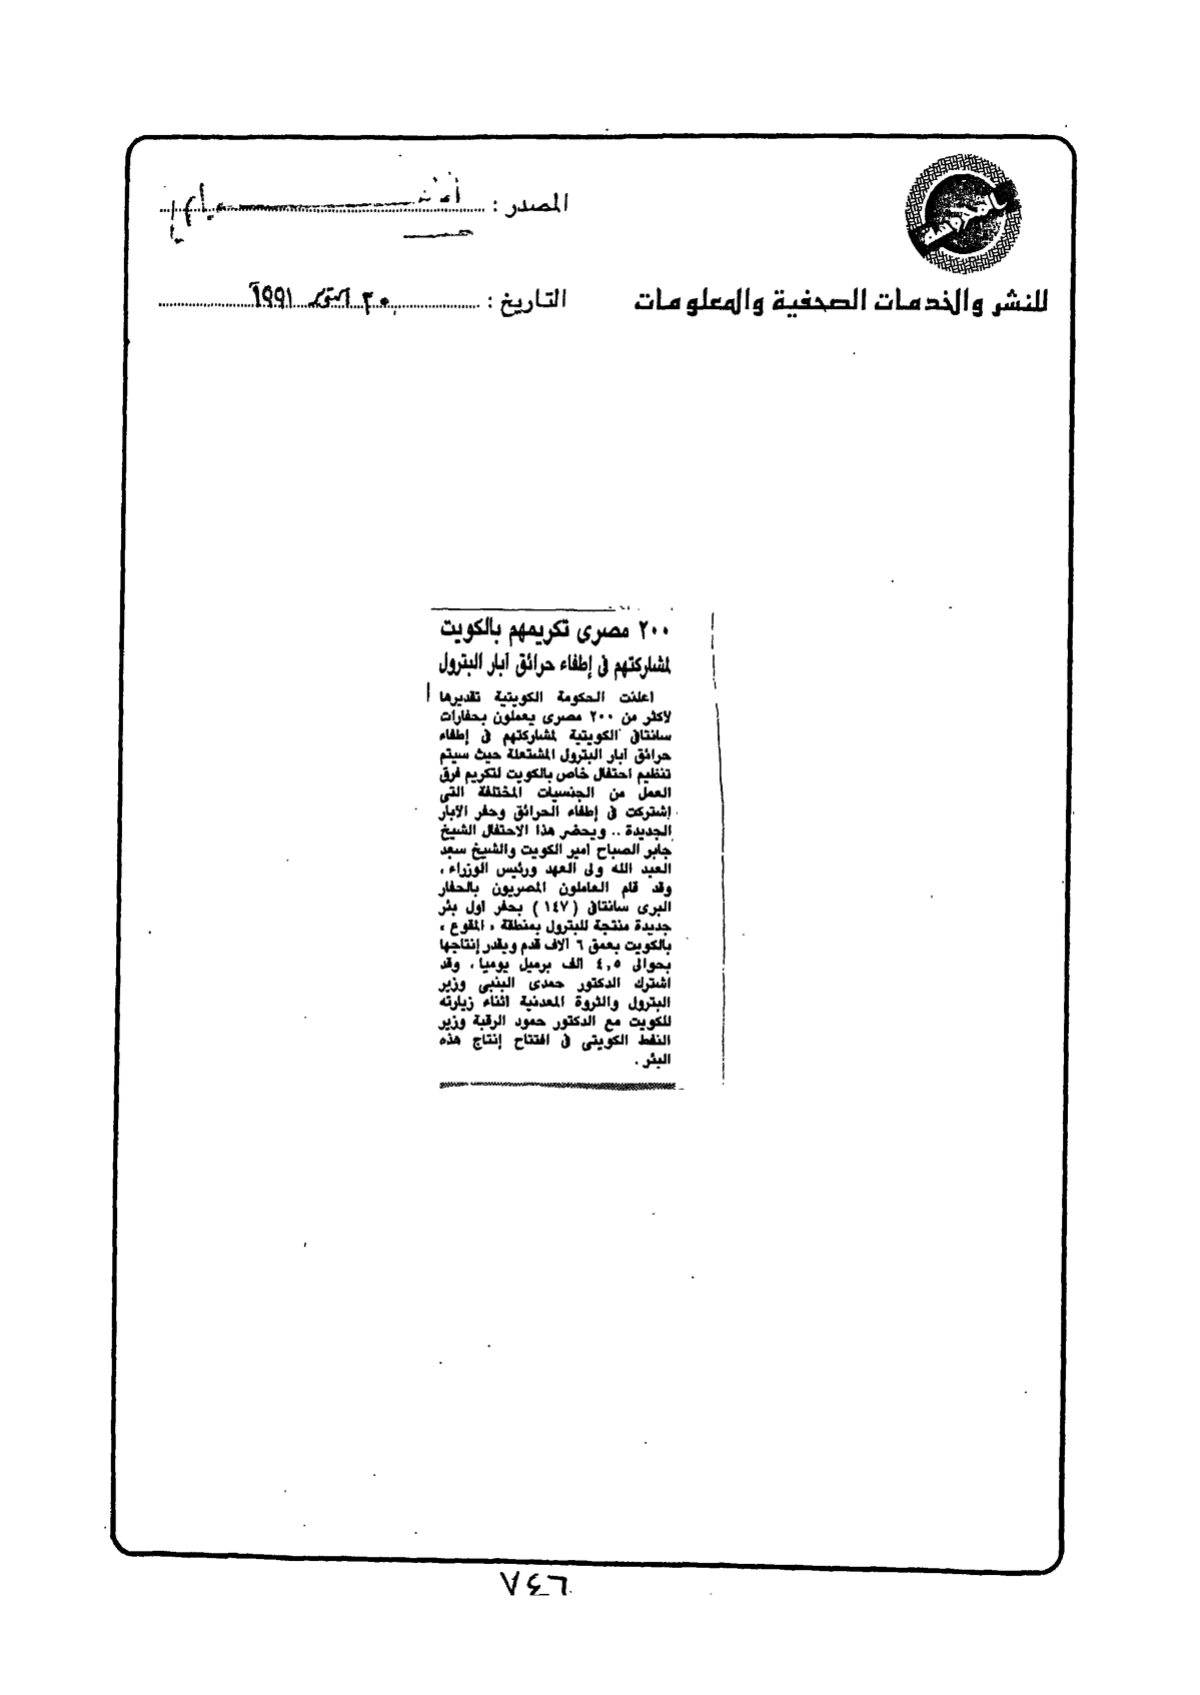 المصدر :
المحروسة
للنشر والخدمات الصحفية والمعلومات
التاريخ : ٣٠ اكتوبر ١٩٩١
٢٠٠ مصرى تكريمهم بالكويت
لمشاركتهم فى إطفاء حرائق آبار البترول
اعلنت الحكومة الكويتية تقديرها
لاكثر من ٢٠٠ مصرى يعملون بحفارات
سانتافى الكويتية لمشاركتهم فى إطفاء
حرائق آبار البترول المشتعلة حيث سيتم
تنظيم احتفال خاص بالكويت لتكريم فرق
العمل من الجنسيات المختلفة التى
إشتركت فى إطفاء الحرائق وحفر الآبار
الجديدة .. ويحضر هذا الاحتفال الشيخ
جابر الصباح امير الكويت والشيخ سعد
العبد الله ولى العهد ورئيس الوزراء ،
وقد قام العاملون المصريون بالحفار
البرى سانتافى ( ١٤٧ ) بحفر اول بئر
جديدة منتجة للبترول بمنطقة « المقوع »
بالكويت بعمق ٦ آلاف قدم ويقدر إنتاجها
بحوالى ٤,٥ الف برميل يوميا ، وقد
اشترك الدكتور حمدى البنبى وزير
البترول والثروة المعدنية اثناء زيارته
للكويت مع الدكتور حمود الرقبة وزير
النفط الكويتى فى افتتاح إنتاج هذه
البئر .
٦٤٨